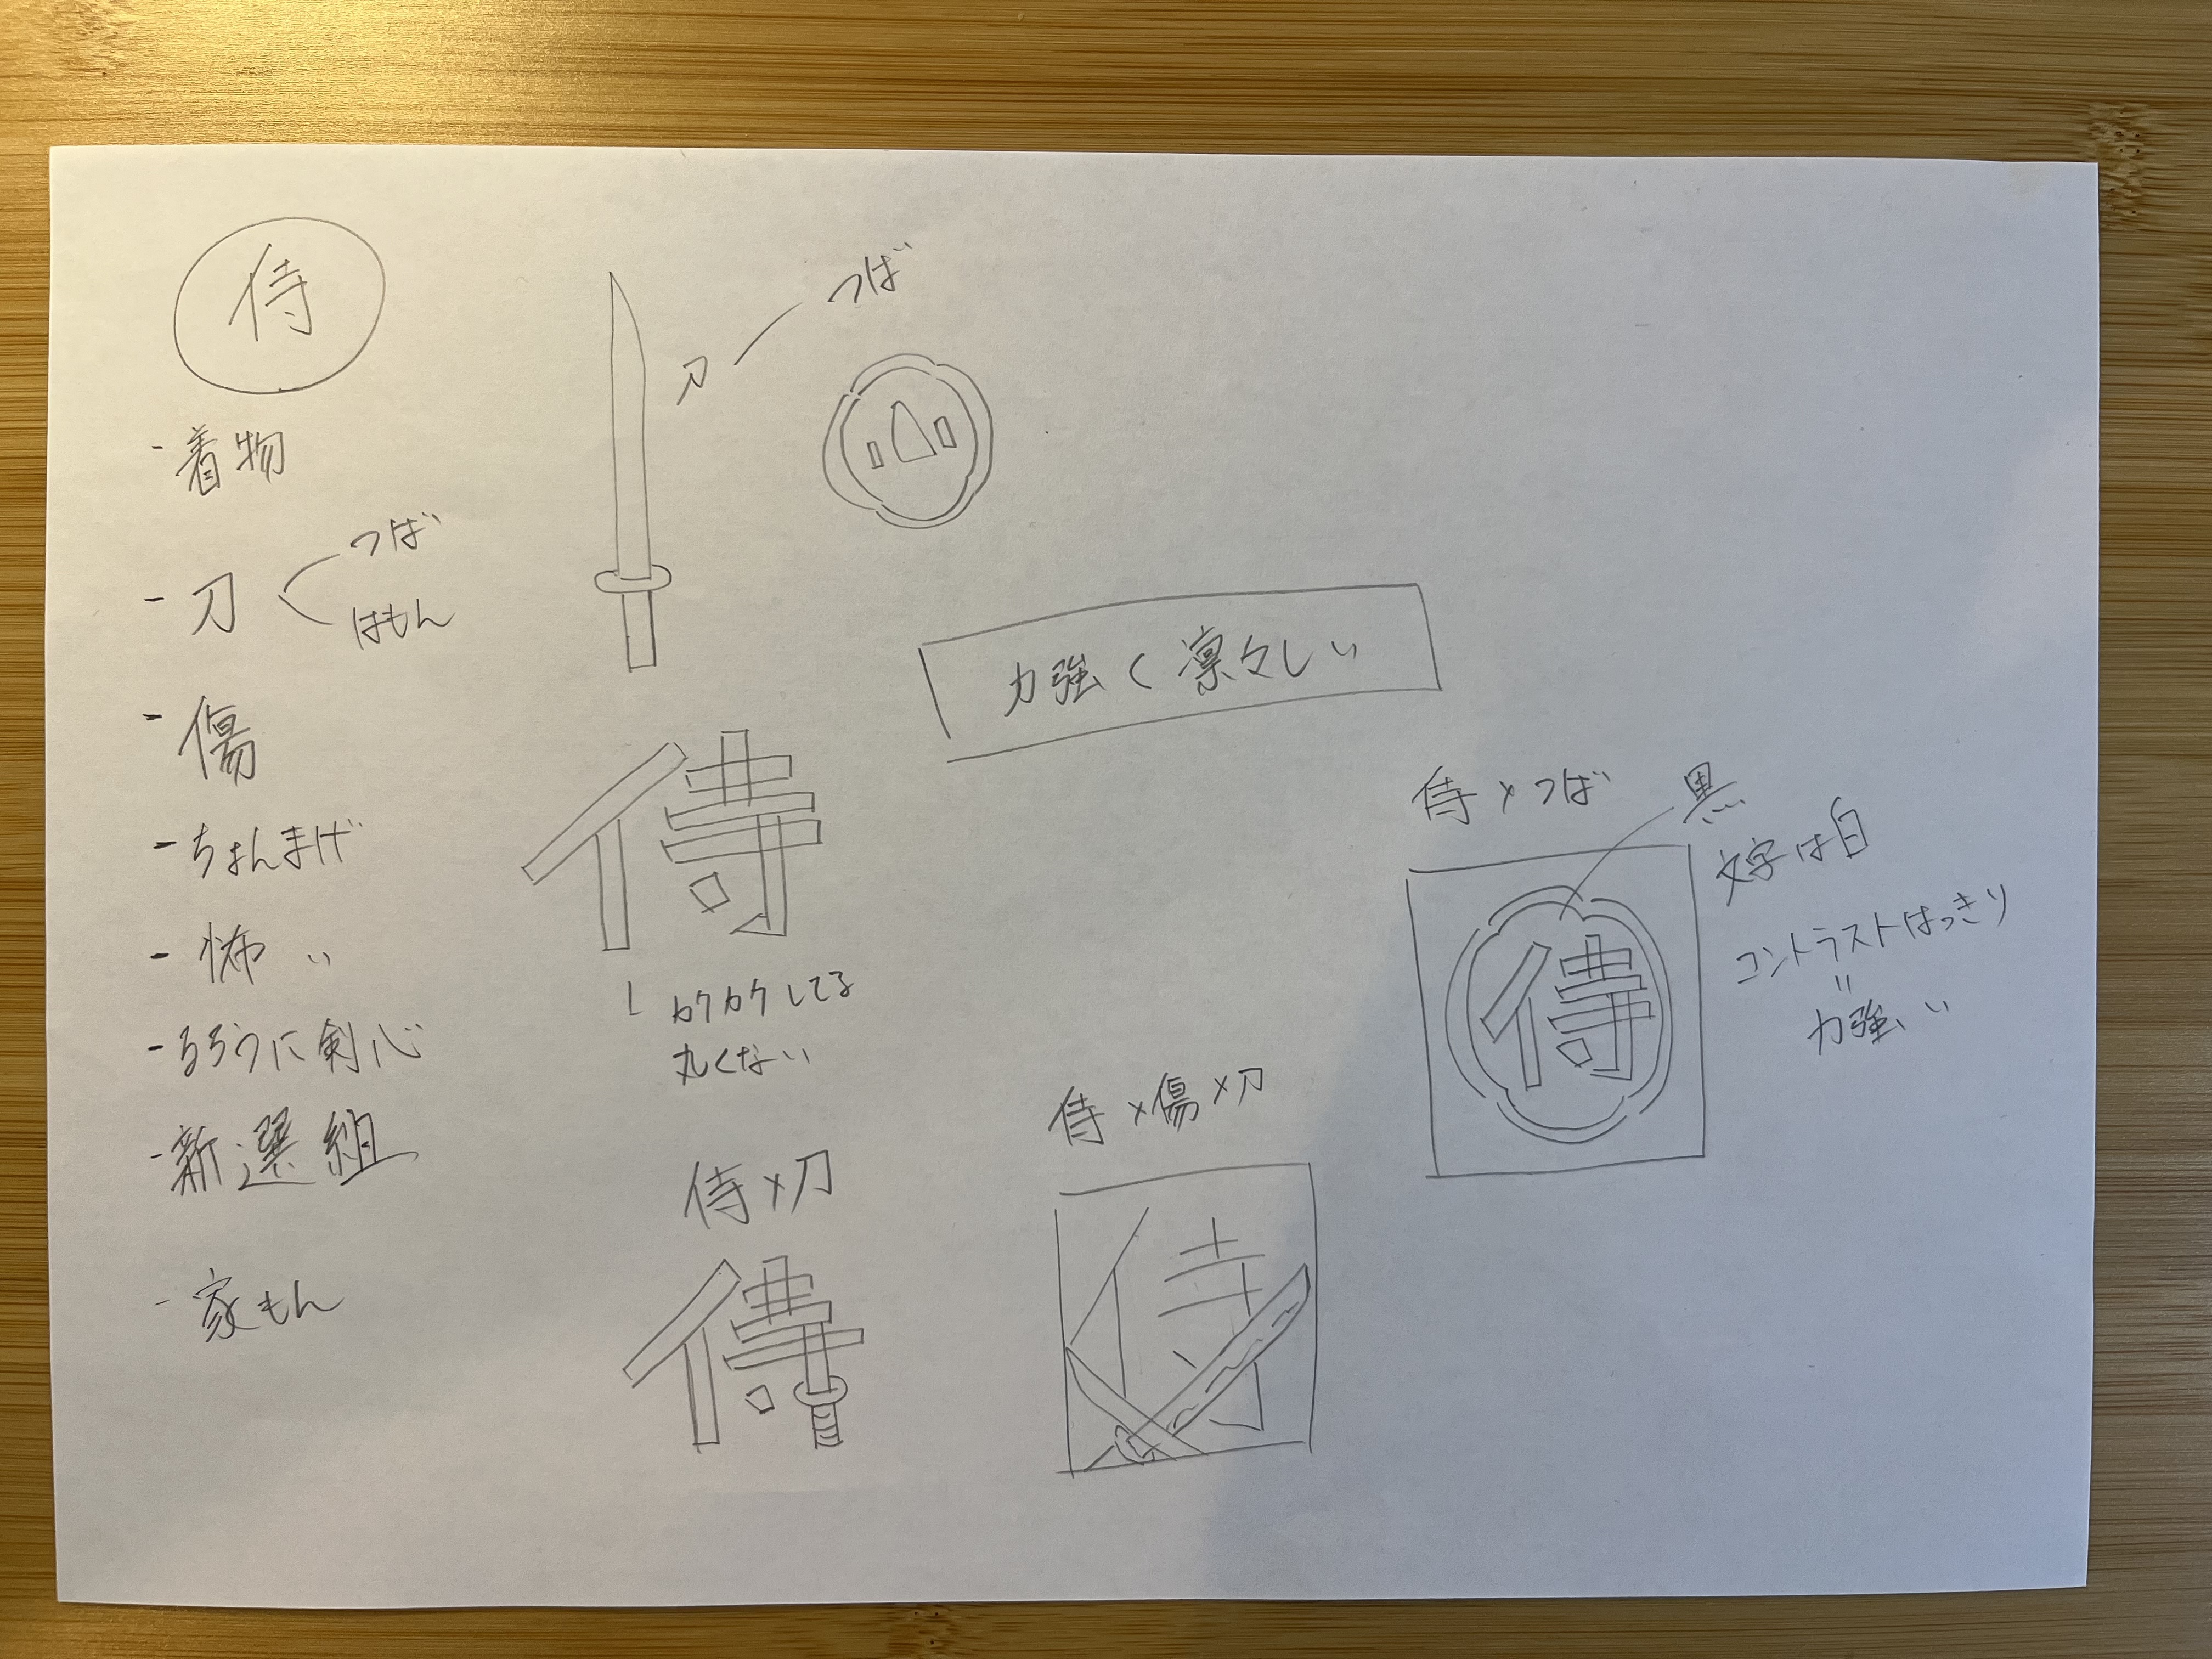 侍
- 着物
- 刀
つば
はもん
- 傷
- ちょんまげ
- 怖い
- るろうに剣心
- 新選組
- 家もん
刀
つば
力強く凛々しい
侍
カクカクしてる
丸くない
侍×刀
侍
侍×傷×刀
侍
侍×つば
黒
文字は白
コントラストはっきり
〃
力強い
侍